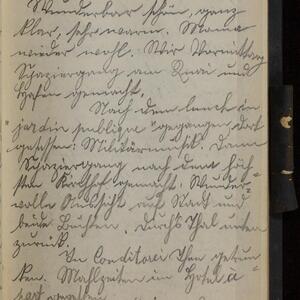 Wunderbar schön, ganz
klar, sehr warm. Mama
wieder wohl. Wir Vormittag
Spaziergang am Quai und
Hafen gemacht.
Nach dem lunch in
jardin publique gegangen, dort
gesessen: Militärmusik. Dann
Spaziergang nach dem höch-
sten Kirchhof gemacht: Wunder-
volle Aussicht auf Stadt und
beide Buchten, durch's Thal unten
zurück.
In Conditorei Thee getrun-
ken. Mahlzeiten im Hotel à